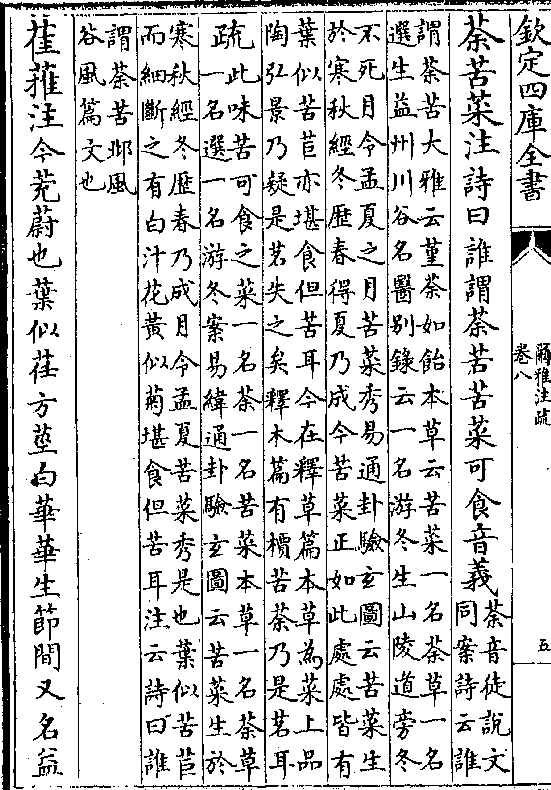 欽定四庫全書
爾雅注疏
卷八
五
荼苦菜注詩曰誰謂荼苦苦菜可食音義
荼音徒說文
同案詩云誰
謂荼苦大雅云菫荼如飴本草云苦菜一名荼草一名
選生益州川谷名醫别錄云一名游冬生山陵道旁冬
不死月令孟夏之月苦菜秀易通卦驗玄圖云苦菜生
於寒秋經冬歷春得夏乃成今苦菜正如此處處皆有
葉似苦苣亦堪食但苦耳今在釋草篇本草為菜上品
陶弘景乃疑是茗失之矣釋木篇有檟苦荼乃是茗耳
疏
此味苦可食之菜一名荼一名苦菜本草一名荼草
一名選一名游冬案易緯通卦驗玄圖云苦菜生於
寒秋經冬歷春乃成月令孟夏苦菜秀是也葉似苦苣
而細斷之有白汁花黃似菊堪食但苦耳注云詩曰誰
謂荼苦邶風
谷風篇文也
萑蓷注今茺蔚也葉似荏方莖白華華生節間又名益